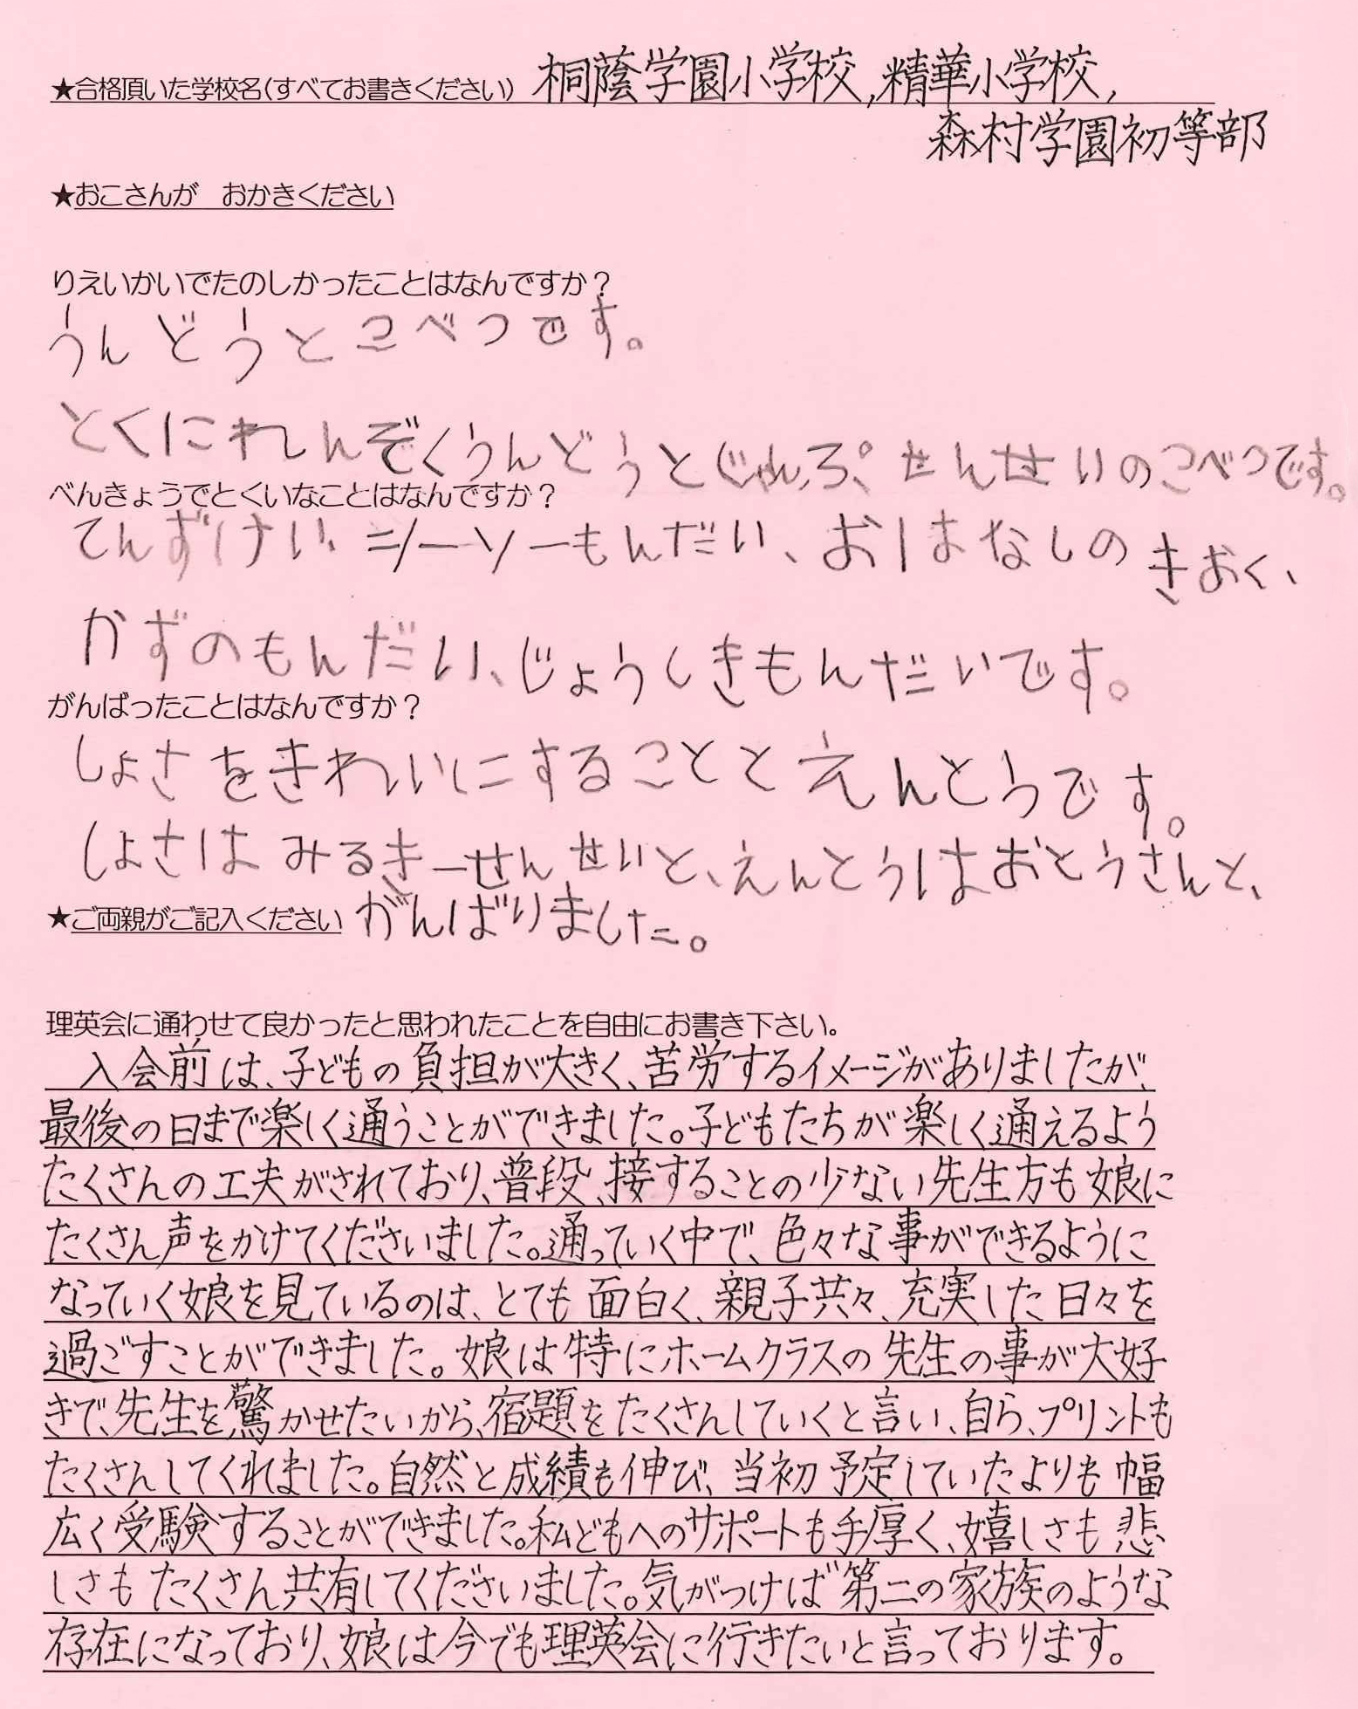 ★合格頂いた学校名(すべてお書きください) 桐蔭学園小学校,精華小学校,
森村学園初等部
★おこさんが おかきください
りえいかいでたのしかったことはなんですか？
うんどうとこべつです。
とくにれんぞくうんどうとじゃんぷ、せんせいのこべつです。
べんきょうでとくいなことはなんですか？
てんずけい、シーソーもんだい、おはなしのきおく、
かずのもんだい、じょうしきもんだいです。
がんばったことはなんですか？
しょさをきれいにすることとえんとうです。
しょさはみるきーせんせいと、えんとうはおとうさんと、
★ご両親がご記入ください がんばりました。
理英会に通わせて良かったと思われたことを自由にお書き下さい。
入会前は、子どもの負担が大きく、苦労するイメージがありましたが、
最後の日まで楽しく通うことができました。子どもたちが楽しく通えるよう
たくさんの工夫がされており、普段、接することの少ない先生方も娘に
たくさん声をかけてくださいました。通っていく中で、色々な事ができるように
なっていく娘を見ているのは、とても面白く、親子共々、充実した日々を
過ごすことができました。娘は特にホームクラスの先生の事が大好
きで、先生を驚かせたいから、宿題をたくさんしていくと言い、自ら、プリントも
たくさんしてくれました。自然と成績も伸び、当初予定していたよりも幅
広く受験することができました。私どもへのサポートも手厚く、嬉しさも悲
しさもたくさん共有してくださいました。気がつけば第二の家族のような
存在になっており、娘は今でも理英会に行きたいと言っております。